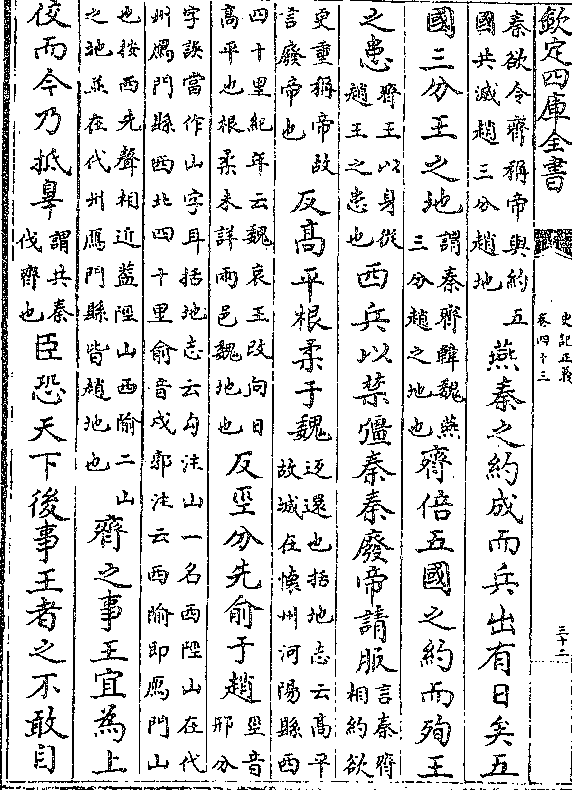 欽定四庫全書
史記正義
卷四十三
三十二
秦欲令齊稱帝與約五
國共滅趙三分趙地
燕秦之約成而兵出有日矣五
國三分王之地
謂秦齊韓魏燕
三分趙之地也
齊倍五國之約而殉王
之患
齊王以身從
趙王之患也
西兵以禁彊秦秦廢帝請服
言秦齊
相約欲
更重稱帝故
言廢帝也
反高平根柔于魏
返還也括地志云高平
故城在懷州河陽縣西
四十里紀年云魏哀王改向曰
高平也根柔未詳兩邑魏地也
反巠分先俞于趙
巠音
邢分
字誤當作山字耳括地志云勾注山一名西陘山在代
州鴈門縣西北四十里俞音戍郭注云西隃即鴈門山
也按西先聲相近蓋陘山西隃二山
之地並在代州鴈門縣皆趙地也
齊之事王宜為上
佼而今乃抵辠
謂共秦
伐齊也
臣恐天下後事王者之不敢自